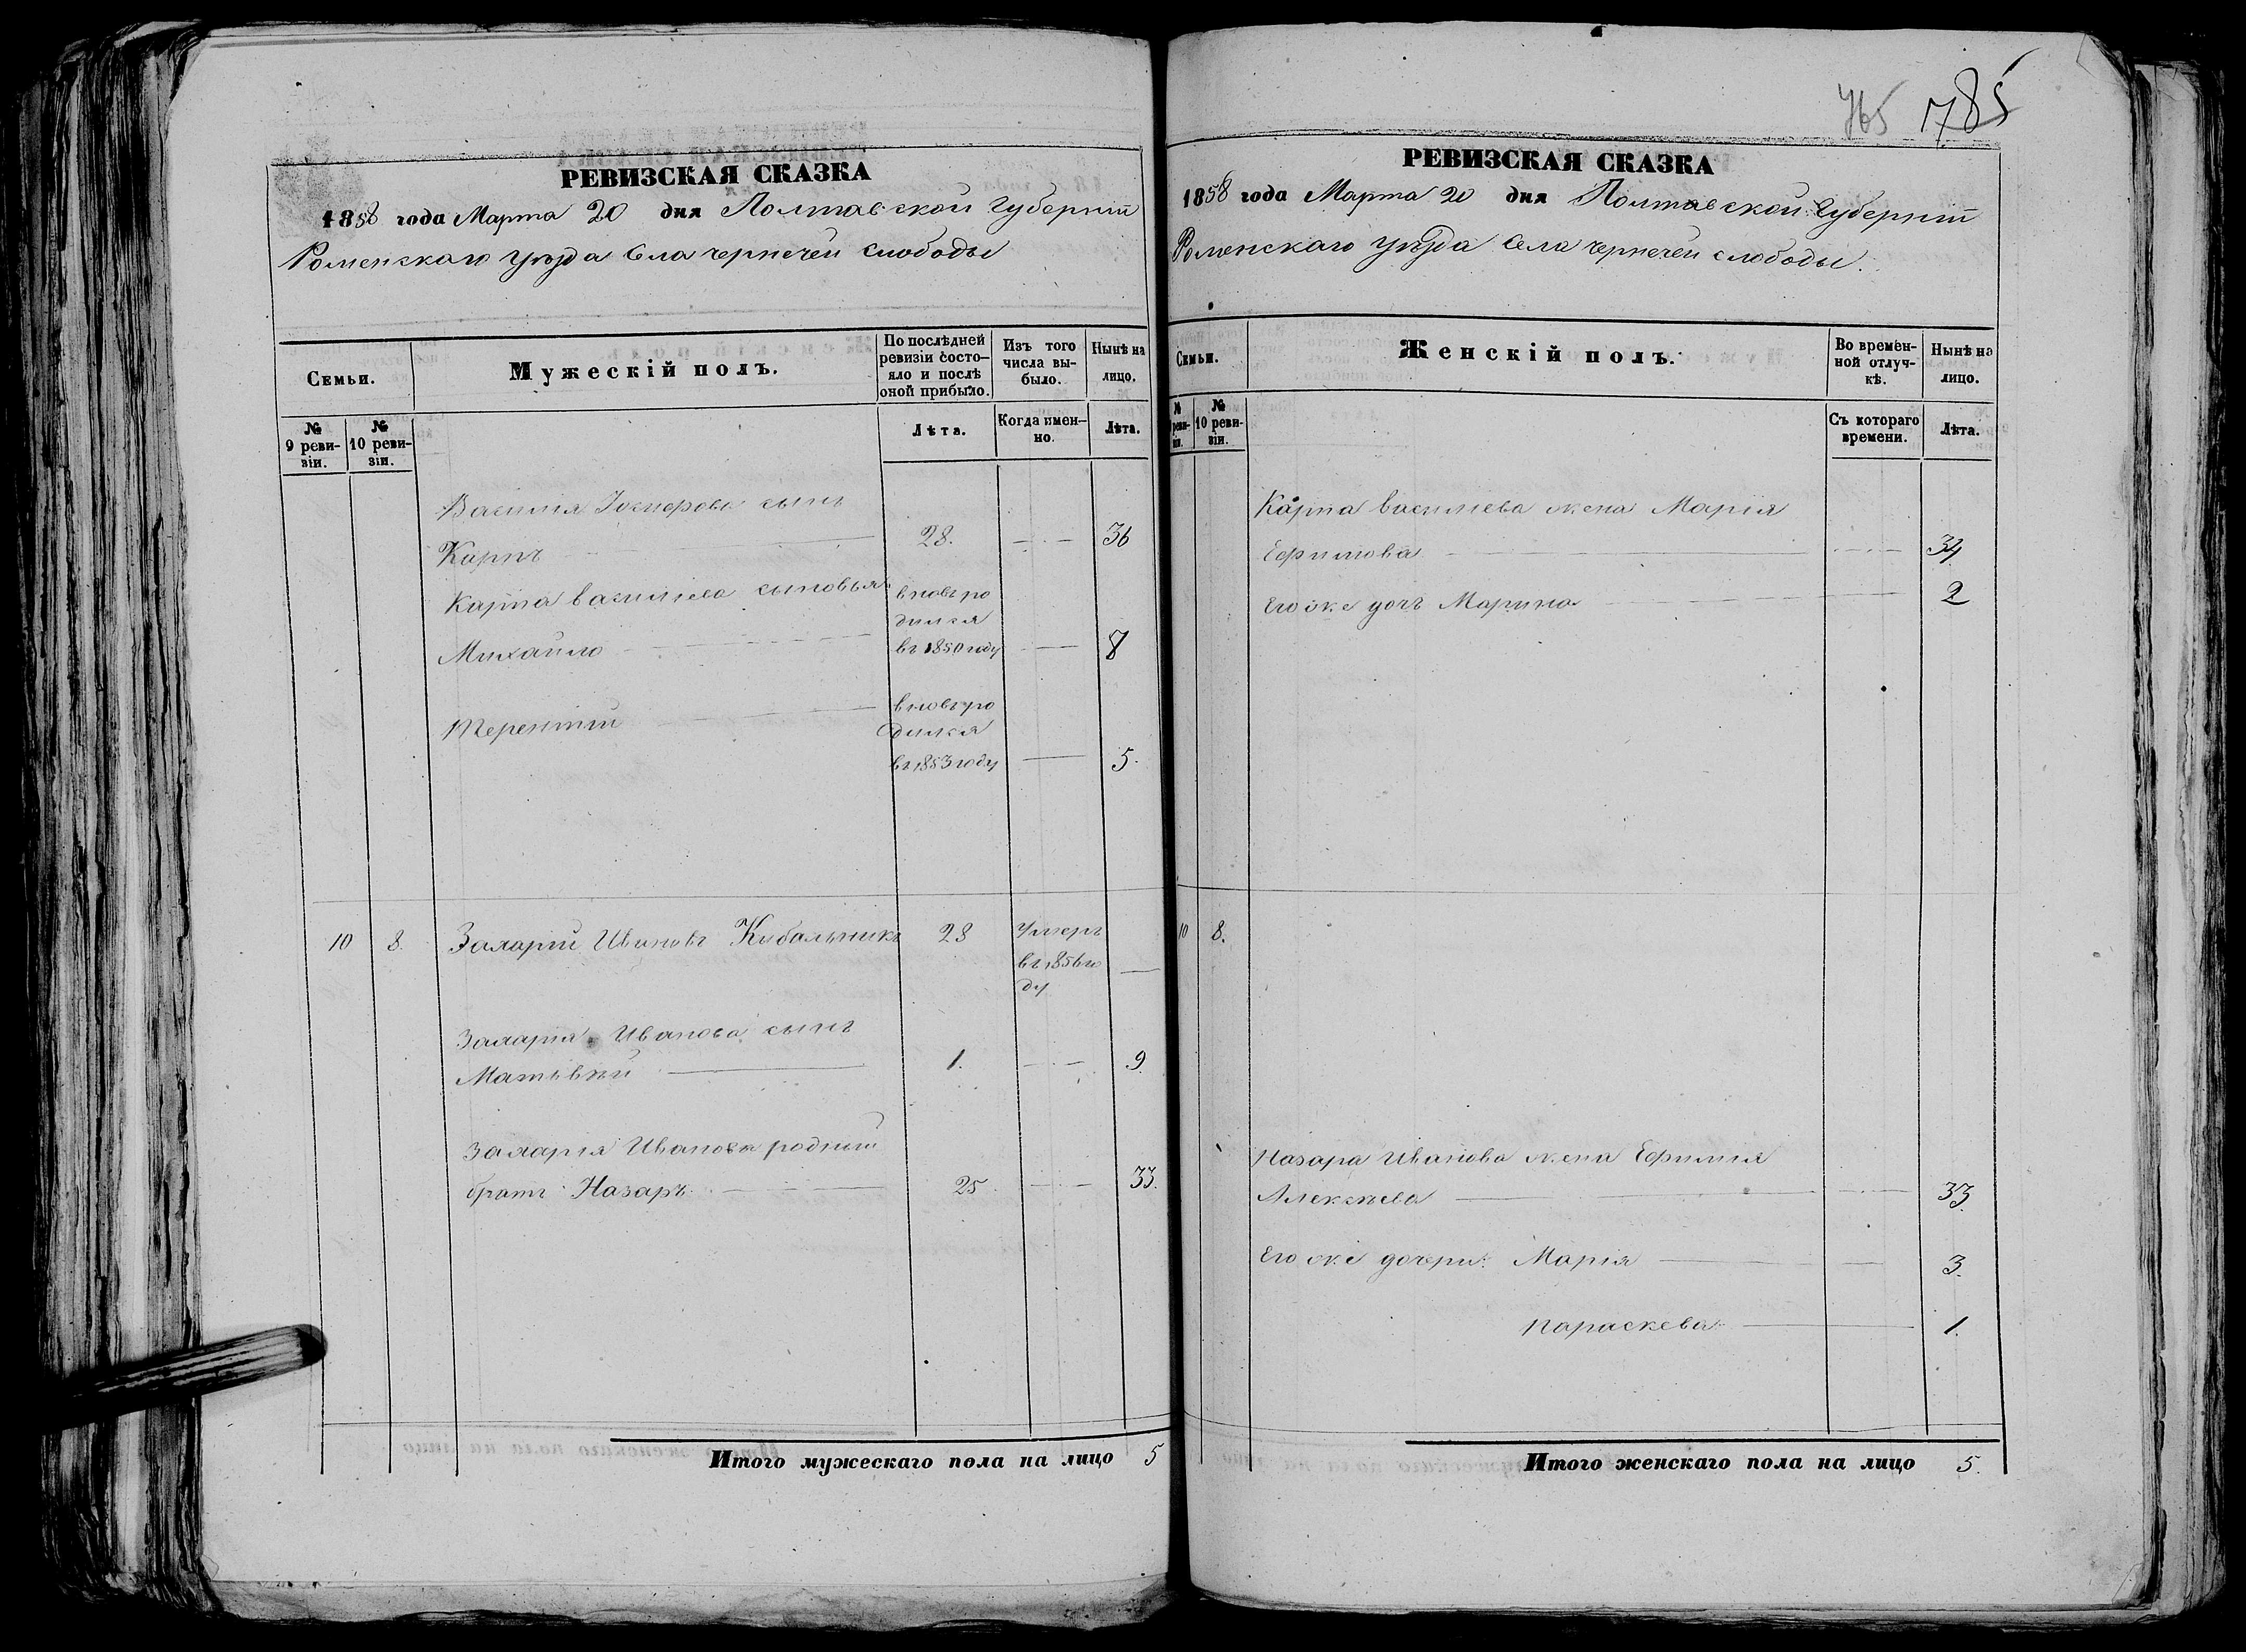 РЕВИЗСКАЯ СКАЗКА
1858 года Марта 20 дня Полтавской губерніи
Роменскаго уѣзда Села чернечей слободы
Семьи.
Мужескій полъ.
По послѣдней ревизіи состояло и послѣ оной прибыло.
Изъ того числа выбыло.
Нынѣ на лицо.
№ 9 ревизіи.
№ 10 ревизіи.
Лѣта.
Когда именно.
Лѣта.
Василія сынъ
Карпъ 28. 36
Карпа василіева сыновья вновь ро
дился
Михайло въ 1850 году 8
вновь ро
Терентій дился
въ 1853 году 5.
10 8. Захарій Ивановъ Кибальникъ 28 Умеръ
въ 1856 го
ду
Захарія Иванова сынъ
Матьвѣй 1. 9.
Захарія Иванова родный
братъ Назаръ 25 33.
Итого мужескаго пола на лицо 5
765 1785
РЕВИЗСКАЯ СКАЗКА
1858 года Марта 20 дня Полтавской Губерніи
Роменскаго уѣзда Села чернечей слободы.
Семьи.
Женскій полъ.
Во временной отлучкѣ.
Нынѣ на лицо.
№ реви-
зіи.
№ 10 ревизіи.
Съ котораго времени.
Лѣта.
Карпа василіева жена Марія
Ефимова 34
Его же дочь Марина 2
10 8.
Назара Иванова жена Ефимія
Алексѣева 33
Его же дочери: Марія 3.
Параскева 1.
Итого женскаго пола на лицо 5.